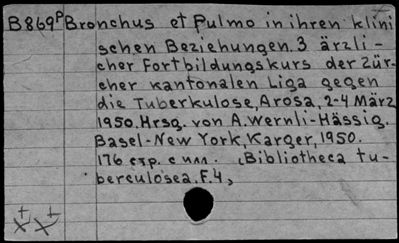 B869ᴾ Bronchus et Pulmo in ihren klini
schen Beziehungen. 3 ärzli-
cher Fortbildungskurs der Zür-
cher Kantonalen Liga gegen
die Tuberkulose, Arosa, 2-4 März
1950. Hrsg. von A. Wernli-Hässig.
Basel-New York, Karger, 1950.
176 стр. с илл. (Bibliotheca tu-
berculosea. F. 4,)